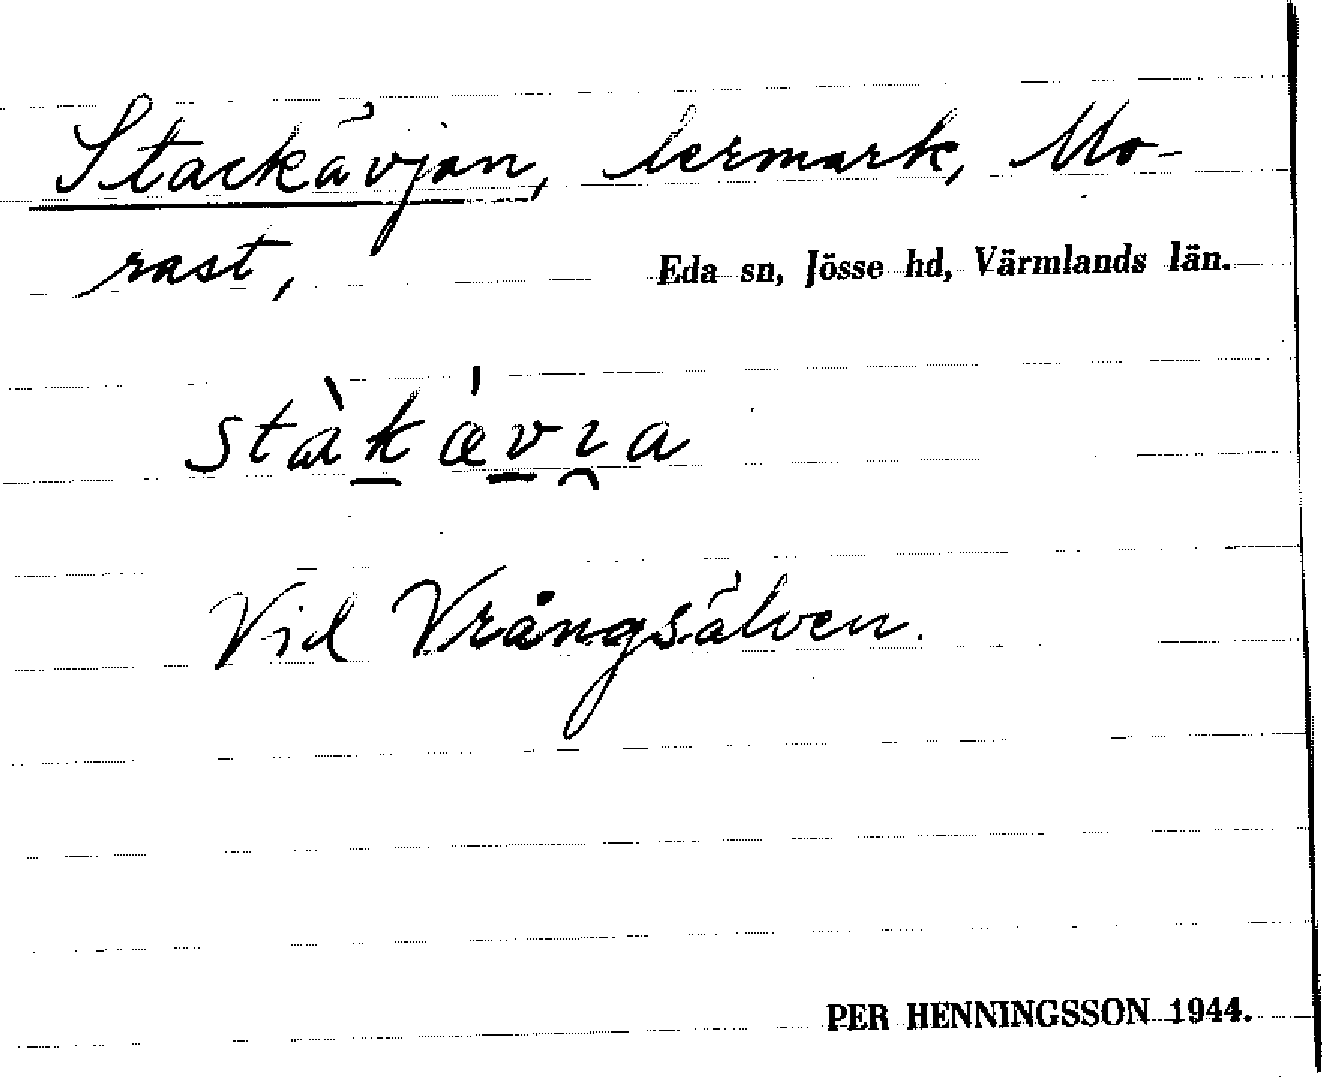 Stackävjan, lermark, Mo-
rast,
Eda sn, Jösse hd, Värmlands län.
stàk ǽvı̯a
Vid Vrångsälven.
PER HENNINGSSON 1944.